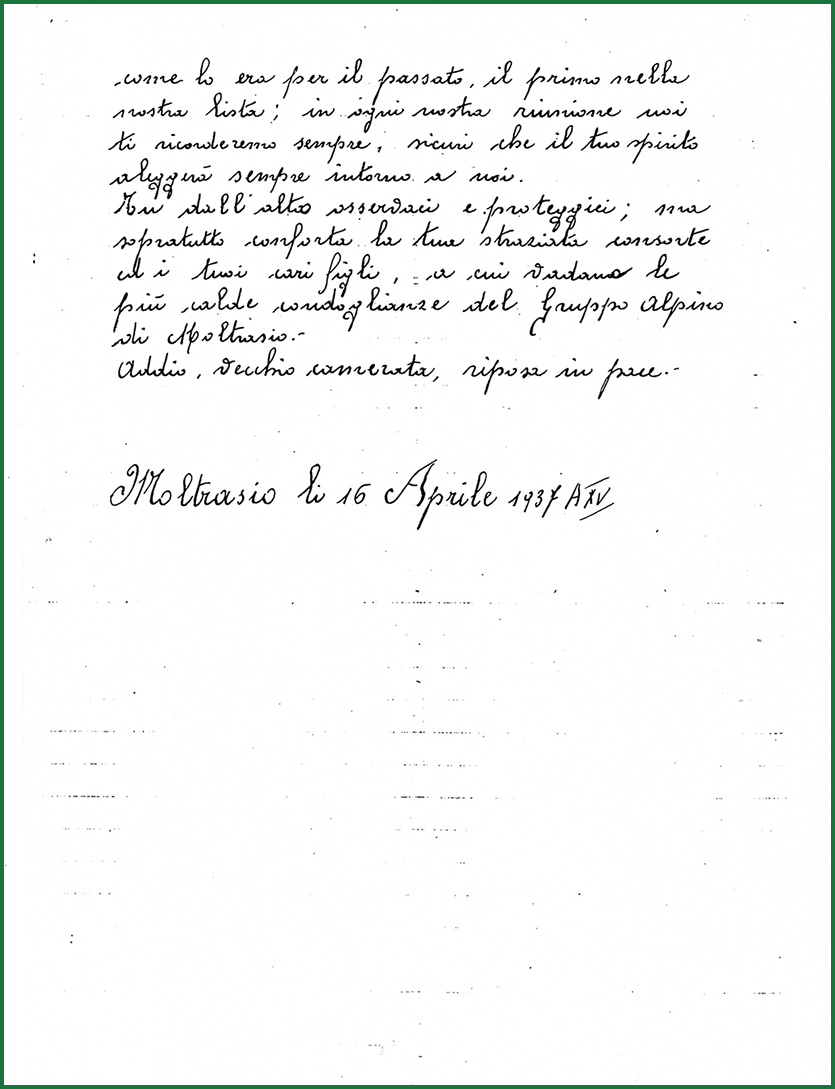 come lo era per il passato, il primo nella
nostra lista; in ogni nostra riunione noi
ti ricorderemo sempre, sicuri che il tuo spirito
aleggerà sempre intorno a noi.
Tu dall'alto osservaci e proteggici; ma
sopratutto conforta la tua straziata consorte
ed i tuoi cari figli, a cui vadano le
più calde condoglianze del Gruppo Alpino
di Moltrasio.-
Addio, vecchio camerata, riposa in pace.-
Moltrasio li 16 Aprile 1937 A XV